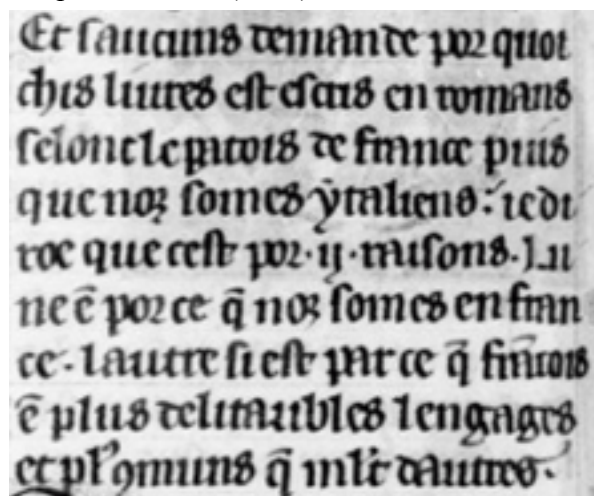 Et saucuns demande por quoi
chis liures est escris en romans
selonc le patois de france puis
que noꝫ somes ẏtaliens. ie di
roe que cest por .ij. raisons. Lu
ne ē por ce q̄ noꝫ somes en fran
ce. lautre si est par ce q̄ frācois
ē plus delitaubles lengages
et pl᷒ ꝯmuns q̄ mlt̄ dautres.